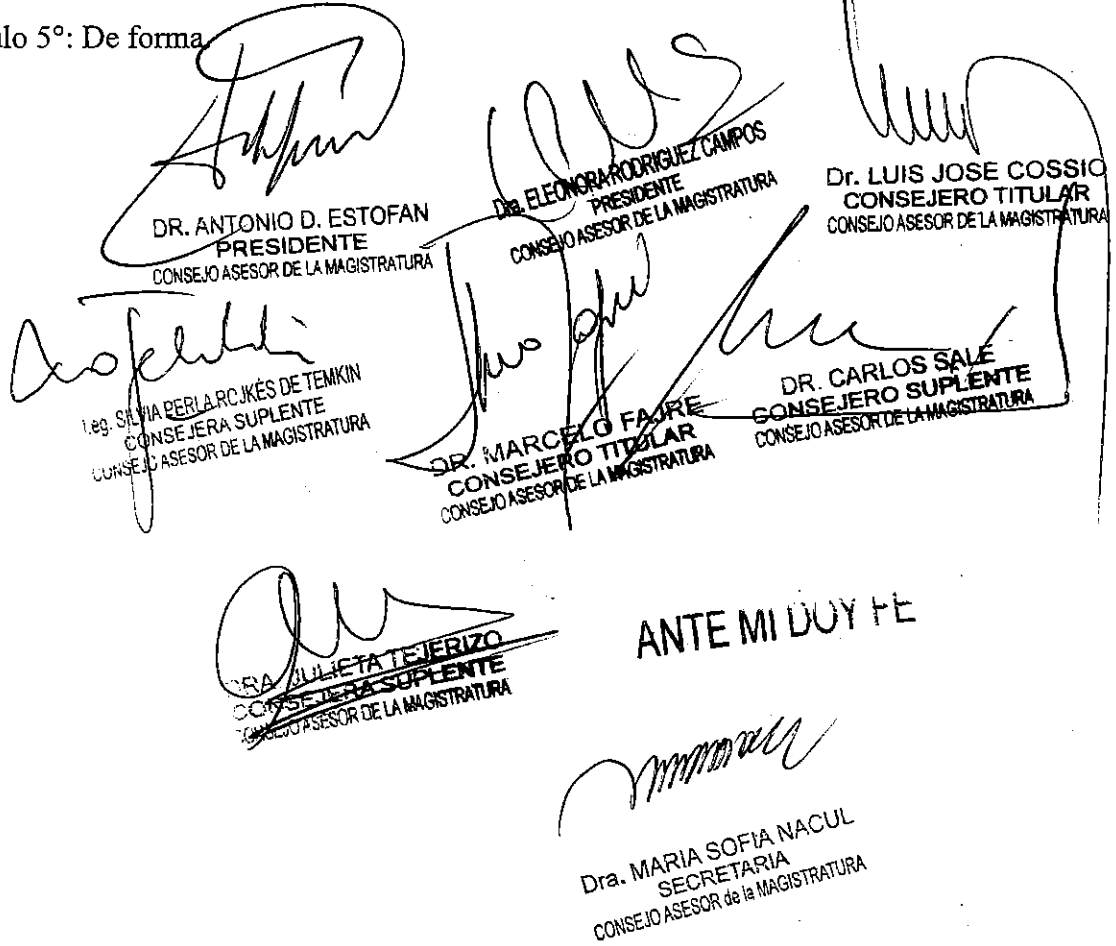 lo 5°: De forma
DR. ANTONIO D. ESTOFAN
PRESIDENTE
CONSEJO ASESOR DE LA MAGISTRATURA
Dra. ELEONORA RODRIGUEZ CAMPOS
PRESIDENTE
CONSEJO ASESOR DE LA MAGISTRATURA
Dr. LUIS JOSE COSSIO
CONSEJERO TITULAR
CONSEJO ASESOR DE LA MAGISTRATURA
Leg. SILVIA PERLA ROJKÉS DE TEMKIN
CONSEJERA SUPLENTE
CONSEJO ASESOR DE LA MAGISTRATURA
DR. MARCELO FAJRE
CONSEJERO TITULAR
CONSEJO ASESOR DE LA MAGISTRATURA
DR. CARLOS SALE
CONSEJERO SUPLENTE
CONSEJO ASESOR DE LA MAGISTRATURA
DRA. JULIETA TEJERIZO
CONSEJERA SUPLENTE
CONSEJO ASESOR DE LA MAGISTRATURA
ANTE MI DOY FE
Dra. MARIA SOFIA NACUL
SECRETARIA
CONSEJO ASESOR de la MAGISTRATURA